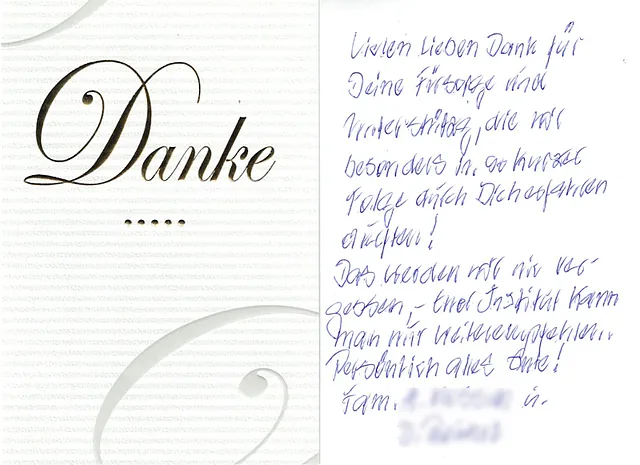 Danke
Vielen lieben Dank für
Deine Fürsorge und
Unterstützg, die wir
besonders in so kurzer
Folge durch Dich erfahren
durften!
Das werden wir nie ver-
gessen, - Euer Institut kann
man nur weiterempfehlen.
Persönlich alles Gute!
Fam. u.